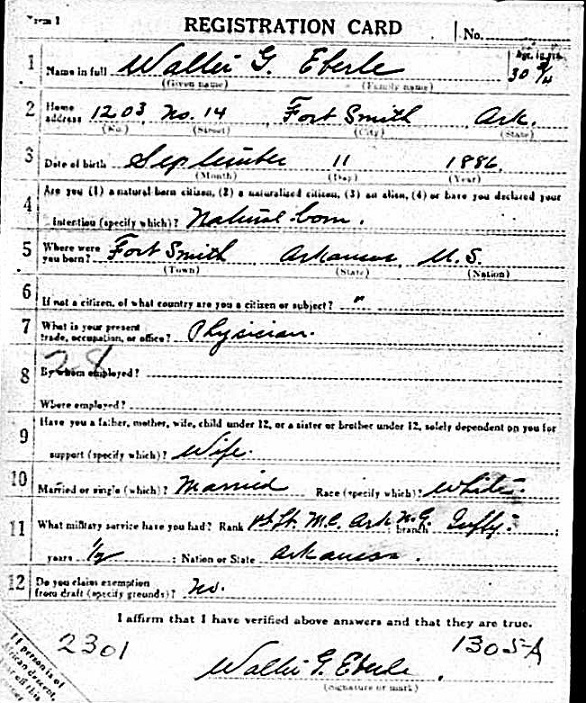 Form 1
REGISTRATION CARD
No.
1 Name in full Walter G. Eberle Age, in yrs. 30
(Given name) (Family name)
2 Home address 1203 No. 14 Fort Smith Ark.
(No.) (Street) (City) (State)
3 Date of birth September 11 1886
(Month) (Day) (Year)
4 Are you (1) a natural-born citizen, (2) a naturalized citizen, (3) an alien, (4) or have you declared your
intention (specify which)? Natural-born.
5 Where were you born? Fort Smith Arkansas U.S.
(Town) (State) (Nation)
6 If not a citizen, of what country are you a citizen or subject? "
7 What is your present trade, occupation, or office? Physician.
28
8 By whom employed?
Where employed?
9 Have you a father, mother, wife, child under 12, or a sister or brother under 12, solely dependent on you for
support (specify which)? Wife.
10 Married or single (which)? Married Race (specify which)? White.
11 What military service have you had? Rank 1st Lt. M.C. Ark N.G. ; branch Infty. ;
years 1/2 ; Nation or State Arkansas.
12 Do you claim exemption from draft (specify grounds)? No.
I affirm that I have verified above answers and that they are true.
2301 1305-A
Walter G. Eberle.
(Signature or mark)
If person is of
African descent,
tear off this
corner